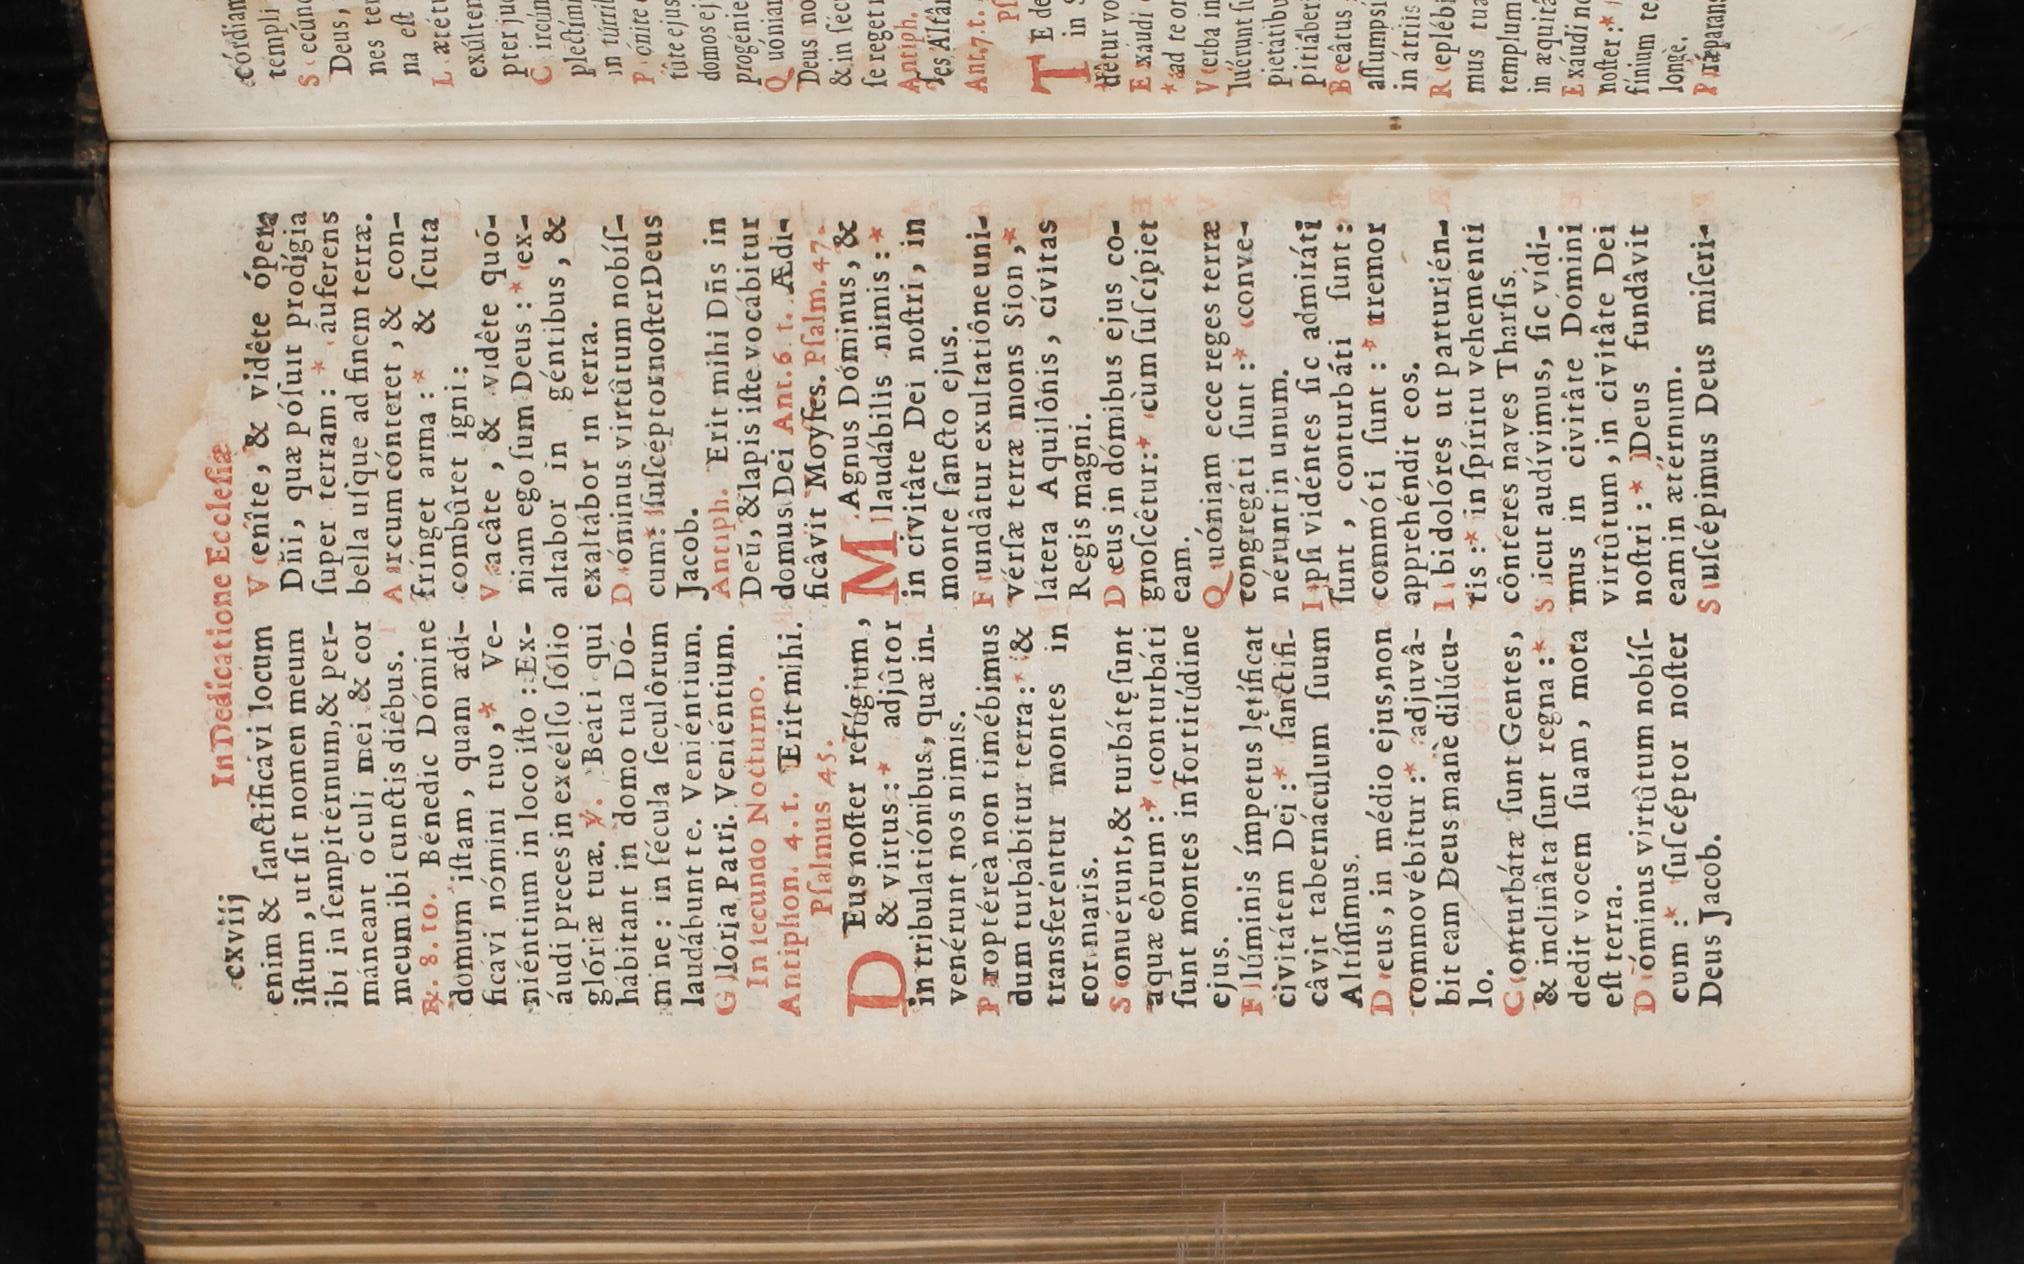 cxviij
In Dedicatione Ecclesiæ
enim & ſanctificavi locum
iſtum, ut ſit nomen meum
ibi in ſempitérnum, & per-
máneant óculi mei & cor
meum ibi cunctis diébus.
℟. 8. to. Bénedic Dómine
domum iſtam, quam ædi-
ficávi nómini tuo, * Ve-
niéntium in loco iſto: Ex-
áudi preces in excélſo ſólio
glóriæ tuæ. ℣. Beáti qui
habitant in domo tua Dó-
mine: in ſécula ſeculôrum
laudábunt te. Veniéntium.
Glória Patri. Veniéntium.
In ſecundo Nocturno.
Antiphon. 4. t. Erit mihi.
Pſalmus 45.
DEus noſter refúgium,
& virtus: * adjûtor
in tribulatiónibus, quæ in-
venérunt nos nimis.
Proptéreà non timébimus
dum turbabitur terra: * &
transferéntur montes in
cor maris.
Sonuérunt, & turbátę ſunt
aquæ eôrum: * conturbáti
ſunt montes in fortitúdine
ejus.
Flúminis ímpetus lętíficat
civitátem Dei: * ſanctifi-
câvit tabernáculum ſuum
Altíſſimus.
Deus, in médio ejus, non
commovébitur: * adjuvâ-
bit eam Deus manè dilúcu-
lo.
Conturbátæ ſunt Gentes,
& inclinâta ſunt regna: *
dedit vocem ſuam, mota
eſt terra.
Dóminus virtûtum nobíſ-
cum: * ſuſcéptor noſter
Deus Jacob.
Venîte, & vidête ópera
Dñi, quæ póſuit prodígia
ſuper terram: * áuferens
bella uſque ad finem terræ.
Arcum cónteret, & con-
frínget arma: * & ſcuta
combûret igni:
Vacâte, & vidête quó-
niam ego ſum Deus: * ex-
altabor in géntibus, &
exaltábor in terra.
Dóminus virtûtum nobíſ-
cum: * ſuſcéptor noſter Deus
Jacob.
Antiph. Erit mihi Dñs in
Deū, & lapis iſte vocábitur
domus Dei Ant. 6. t. Ædi-
ficâvit Moyſes. Pſalm. 47.
MAgnus Dóminus, &
laudábilis nimis: *
in civitâte Dei noſtri, in
monte ſancto ejus.
Fundâtur exultatiône uni-
vérſæ terræ mons Sion, *
látera Aquilônis, cívitas
Regis magni.
Deus in dómibus ejus co-
gnoſcêtur: * cùm ſuſcípiet
eam.
Quóniam ecce reges terræ
congregáti ſunt: * conve-
nérunt in unum.
Ipſi vidéntes ſic admiráti
ſunt, conturbáti ſunt:
commóti ſunt: * tremor
apprehéndit eos.
Ibi dolóres ut parturién-
tis: * in ſpíritu vehementi
cônteres naves Tharſis.
Sicut audívimus, ſic vídi-
mus in civitâte Dómini
virtûtum, in civitâte Dei
noſtri: * Deus fundâvit
eam in ætérnum.
Suſcépimus Deus miſeri-
córdiam
templi
Secúnd
Deus,
nes ter
na eſt
Lætétu
exúlten
pter jud
Circún
plectími
in túrrib
Pónite c
tûte ejus
domos ej
progénie
Quóniam
Deus no
& in ſécu
ſe reget n
Antiph.
Ant. 7. t. Pſ
TE de
in S
détur vo
Exáudi
* ad te o
Verba in
luérunt ſu
pietatibu
pitiáberi
Beâtus
aſſumpsí
in átriis
Replébi
mus tua
templum
in æquitâ
Exáudi no
noſter: *
fínium te
longè.
Præparans